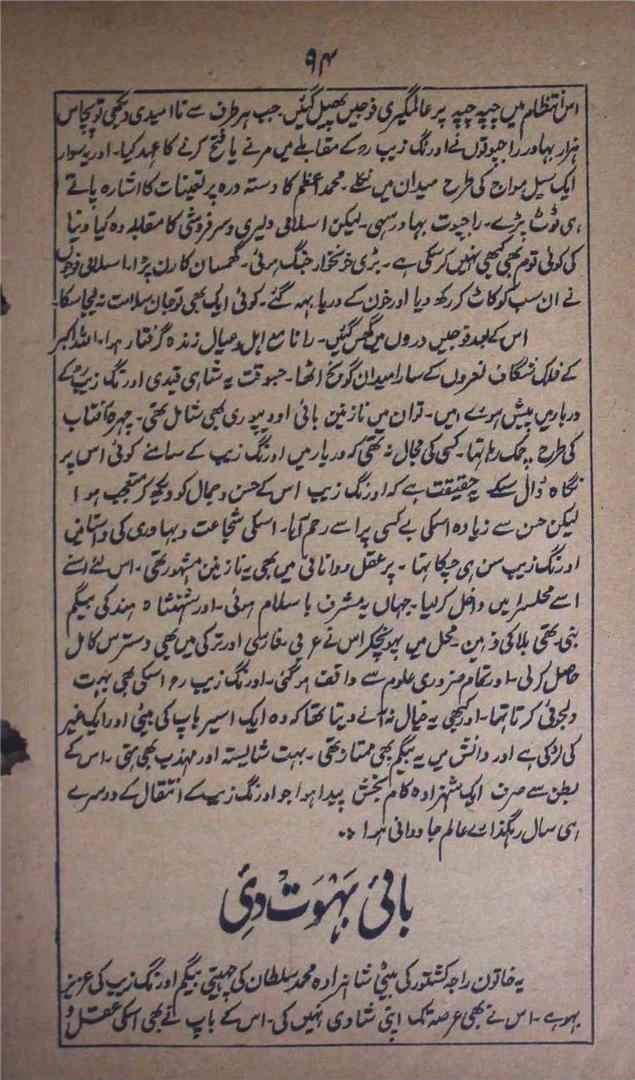 ۹۴
اس انتظام میں چپہ چپہ پر عالمگیری فوجیں پھیل گئیں۔ جب ہر طرف سے نا امیدی دیکھی تو پچاس
ہزار بہادر راجپوتوں نے اورنگ زیب رہ کے مقابلے میں مرنے یا فتح کرنے کا عہد کیا۔ اور یہ سوار
ایک سیل مواج کی طرح میدان میں نکلے۔ محمد اعظم کا دستہ درہ پر تعینات کا اشارہ پاتے
ہی ٹوٹ پڑے۔ راجپوت بہادر سہی۔ لیکن اسلامی دلیری و سرفروشی کا مقابلہ وہ کیا دنیا
کی کوئی قوم بھی کبھی نہیں کر سکی ہے۔ بڑی خونخوار جنگ ہوئی۔ گھمسان کا رن پڑا۔ اسلامی فوجوں
نے ان سب کو کاٹ کر رکھ دیا اور خون کے دریا بہہ گئے۔ کوئی ایک بھی تو جان سلامت نہ لیجا سکا۔
اس کے بعد فوجیں دروں میں گھس گئیں۔ رانا مع اہل و عیال زندہ گرفتار ہوا۔ اللہ اکبر
کے فلک شگاف نعروں کے سارا میدان گونج اٹھا۔ جسوقت یہ شاہی قیدی اورنگ زیب رہ کے
دربار میں پیش ہوئے ہیں۔ تو ان میں نازنین بائی اودیپوری بھی شامل تھی۔ چہرہ آفتاب
کی طرح چمک رہا تھا۔ کسی کی مجال نہ تھی کہ دربار میں اورنگ زیب کے سامنے کوئی اس پر
نگاہ ڈال سکے یہ حقیقت ہے کہ اورنگ زیب اس کے حسن و جمال کو دیکھ کر متعجب ہوا
لیکن حسن سے زیادہ اسکی بے کسی پر اسے رحم آیا۔ اسکی شجاعت و بہادری کی داستانیں
اورنگ زیب سن ہی چکا تھا۔ پر عقل و دانائی میں بھی یہ نازنین مشہور تھی۔ اس لئے اسنے
اسے محلسرا میں داخل کر لیا۔ جہاں یہ مشرف با سلام ہوئی۔ اور شہنشاہ ہند کی بیگم
بنی۔ تھی بلا کی ذہین۔ محل میں پہونچکر اس نے عربی۔ فارسی اور ترکی میں بھی دسترس کامل
حاصل کر لی۔ اور تمام ضروری علوم سے واقف ہو گئی۔ اورنگ زیب رہ اسکی بھی بہت
دلجوئی کرتا تھا۔ اور کبھی یہ خیال نہ آنے دیتا تھا کہ وہ ایک اسیر باپ کی بیٹی اور ایک غیر
کی لڑکی ہے اور دانش میں یہ بیگم بھی ممتاز تھی۔ بہت شائستہ اور مہذب بھی تھی۔ اس کے
بطن سے صرف ایک شہزادہ کام بخش پیدا ہوا جو اورنگ زیب کے انتقال کے دوسرے
ہی سال رہگذائے عالم جاودانی ہوا ؞
بائی بہوت دئی
یہ خاتون راجہ کشتور کی بیٹی شاہزادہ محمد سلطان کی چہیتی بیگم اورنگ زیب کی عزیز
بہو ہے۔ اس نے بھی عرصہ تک اپنی شادی نہیں کی۔ اس کے باپ نے بھی اسکی عقل و